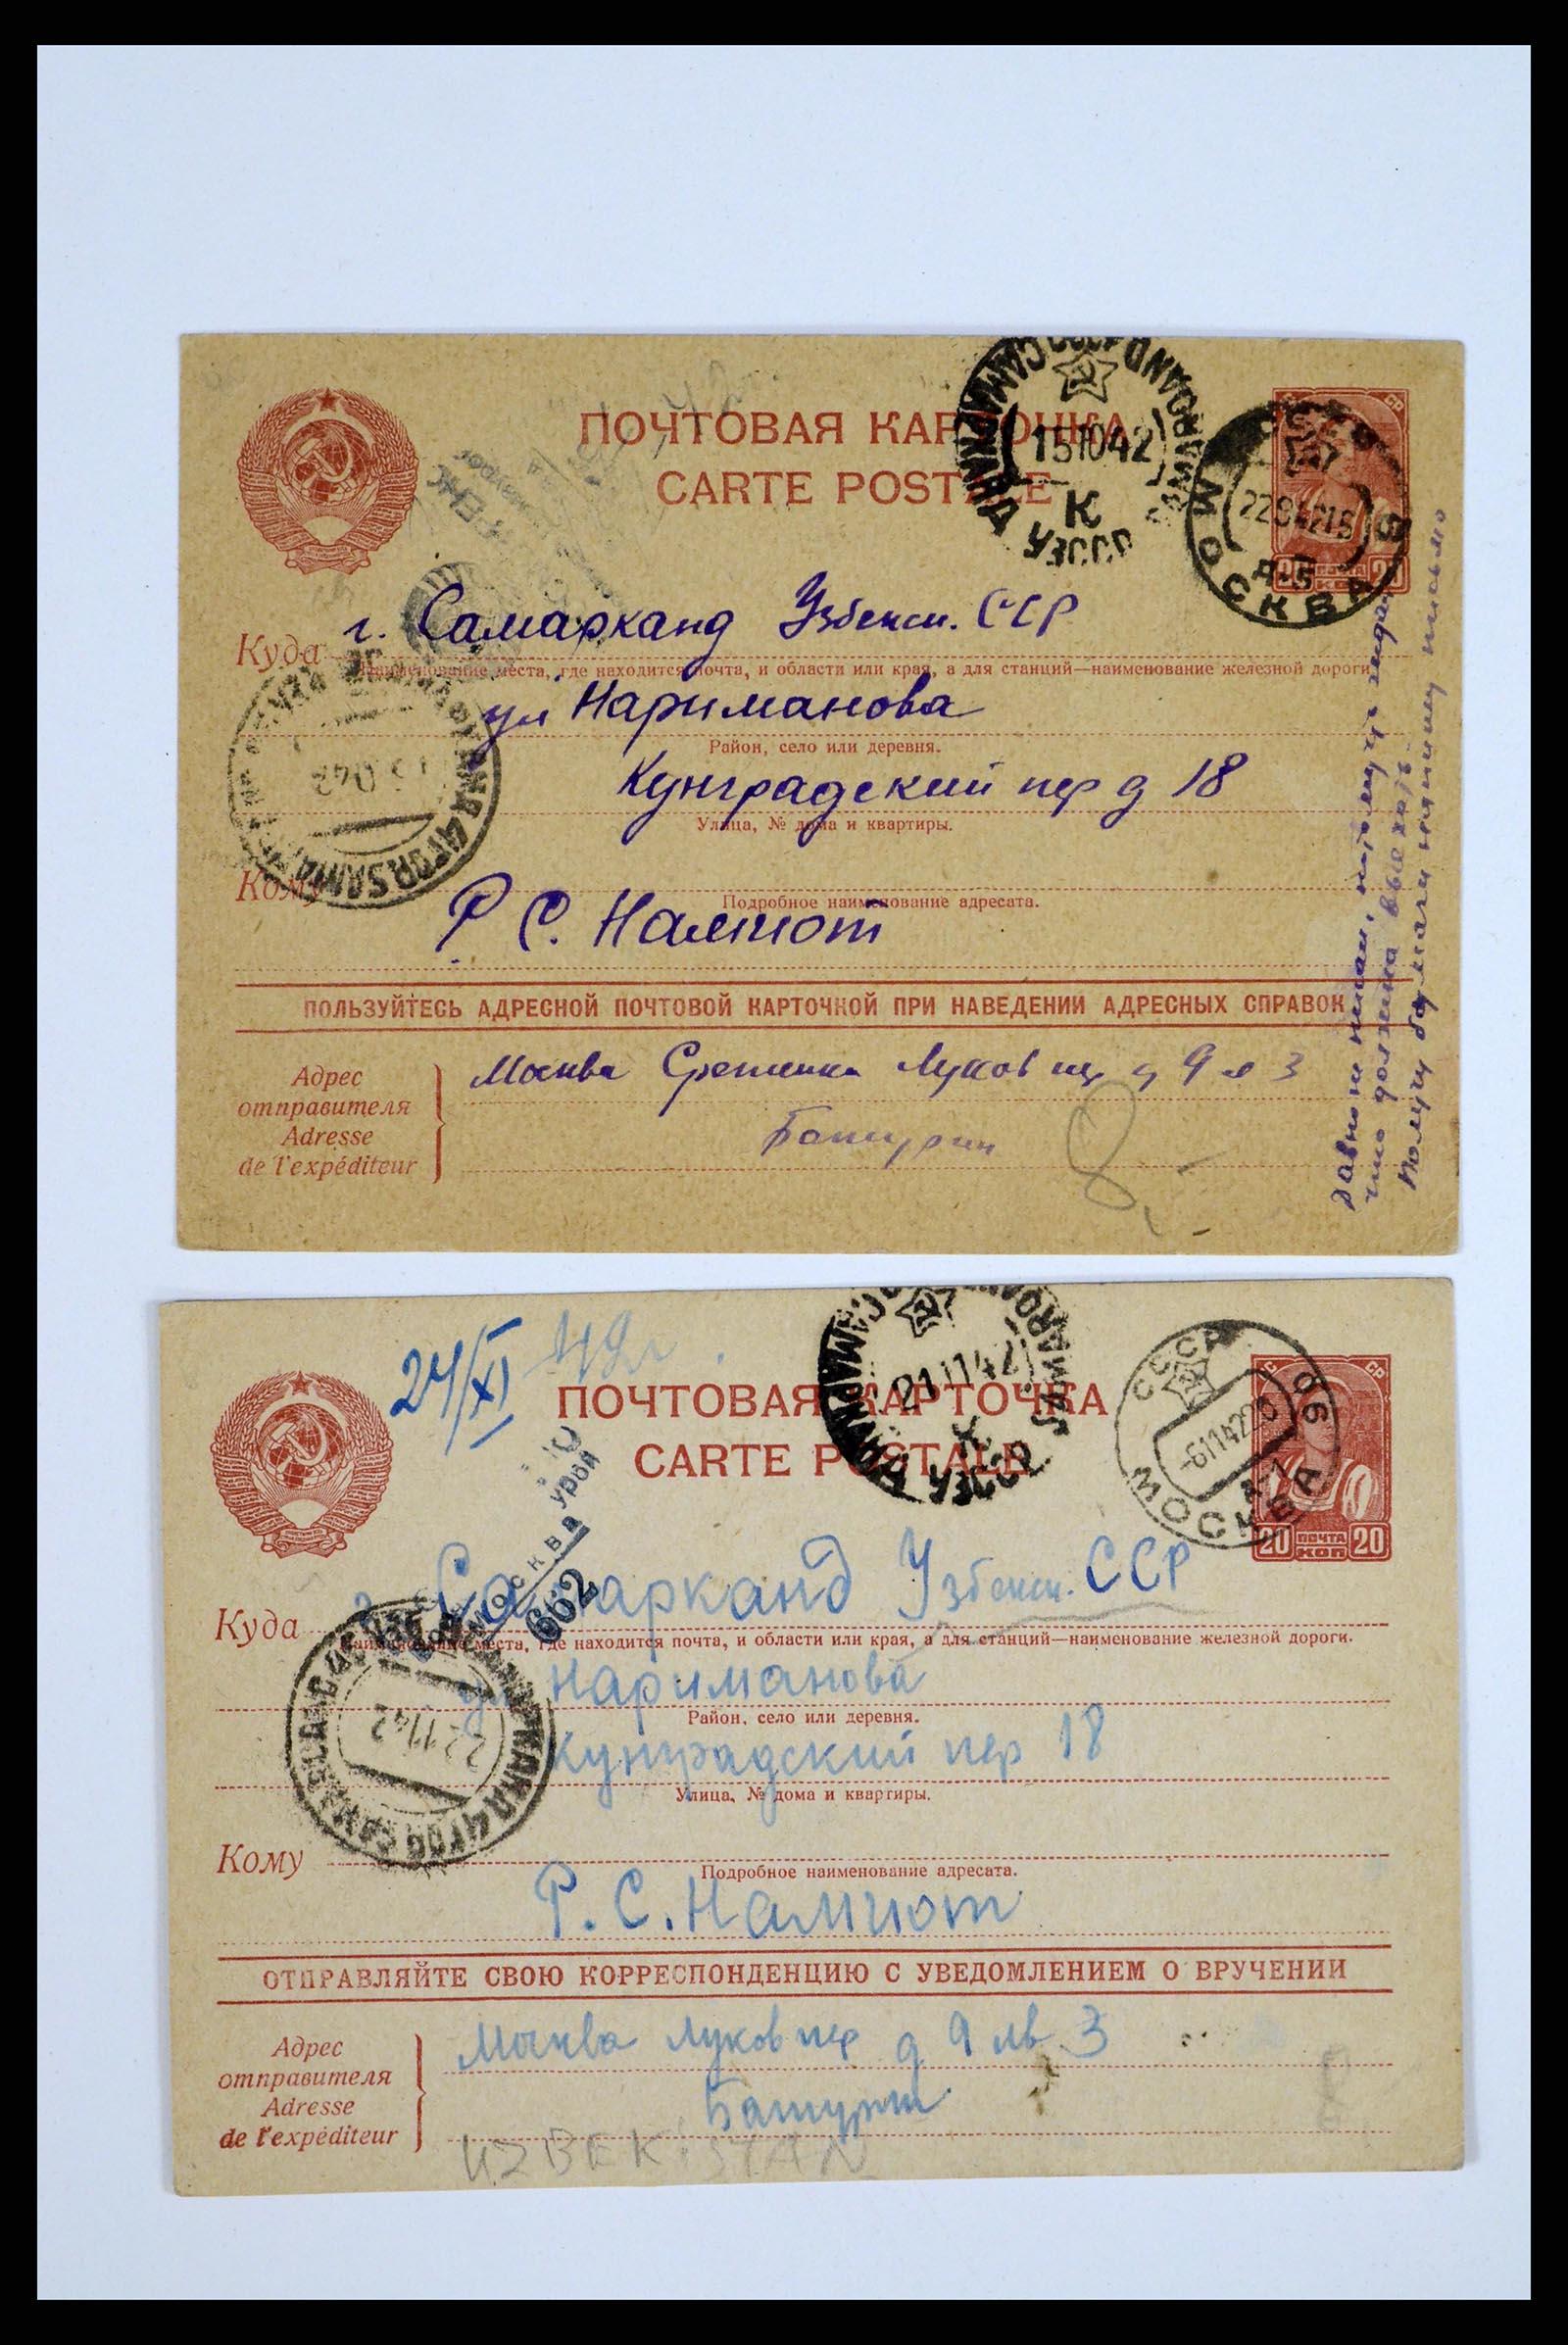 ПОЧТОВАЯ КАРТОЧКА
CARTE POSTALE
САМАРКАНД SAMARQAND
151042
К
УЗССР
СССР
МОСКВА
А-5
ПОЧТА
КОП
Куда г. Самарканд Узбекск. ССР
Наименование места, где находится почта, и области или края, а для станций—наименование железной дороги
ул Нариманова
Район, село или деревня.
Кунградский пер д 18
Улица, № дома и квартиры.
Кому
Подробное наименование адресата.
Р С. Намиот
ПОЛЬЗУЙТЕСЬ АДРЕСНОЙ ПОЧТОВОЙ КАРТОЧКОЙ ПРИ НАВЕДЕНИИ АДРЕСНЫХ СПРАВОК
Адрес
отправителя
Adresse
de l'expéditeur
Москва Сретенка Луков пер д 9 3
Батурин
давно не писал, потому что ждал
что должна выехать
Получу бумаги напишу письмо
24/XI 42г
ПОЧТОВАЯ КАРТОЧКА
CARTE POSTALE
САМАРКАНД SAMARQAND
211142
УЗССР
СССР
МОСКВА
-61142
СССР
20 ПОЧТА КОП 20
МОСКВА
662
Куда г. Самарканд Узбекск. ССР
Наименование места, где находится почта, и области или края, а для станций—наименование железной дороги.
ул Нариманова
Район, село или деревня.
Кунградский пер 18
Улица, № дома и квартиры.
22 11 42
Кому
Подробное наименование адресата.
Р. С. Намиот
ОТПРАВЛЯЙТЕ СВОЮ КОРРЕСПОНДЕНЦИЮ С УВЕДОМЛЕНИЕМ О ВРУЧЕНИИ
Адрес
отправителя
Adresse
de l'expéditeur
Москва Луков пер д 9 кв 3
Батурин
UZBEKISTAN